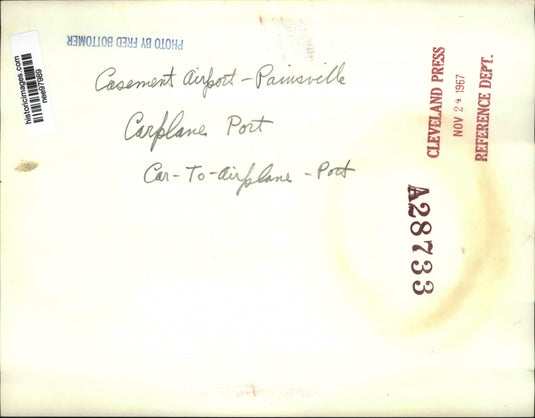 historicimages.com
nee97989
PHOTO BY FRED BOTTOMER
Casement Airport - Painsville
Carplane Port
Car-To-Airplane - Port
CLEVELAND PRESS
NOV 24 1967
REFERENCE DEPT.
A28733